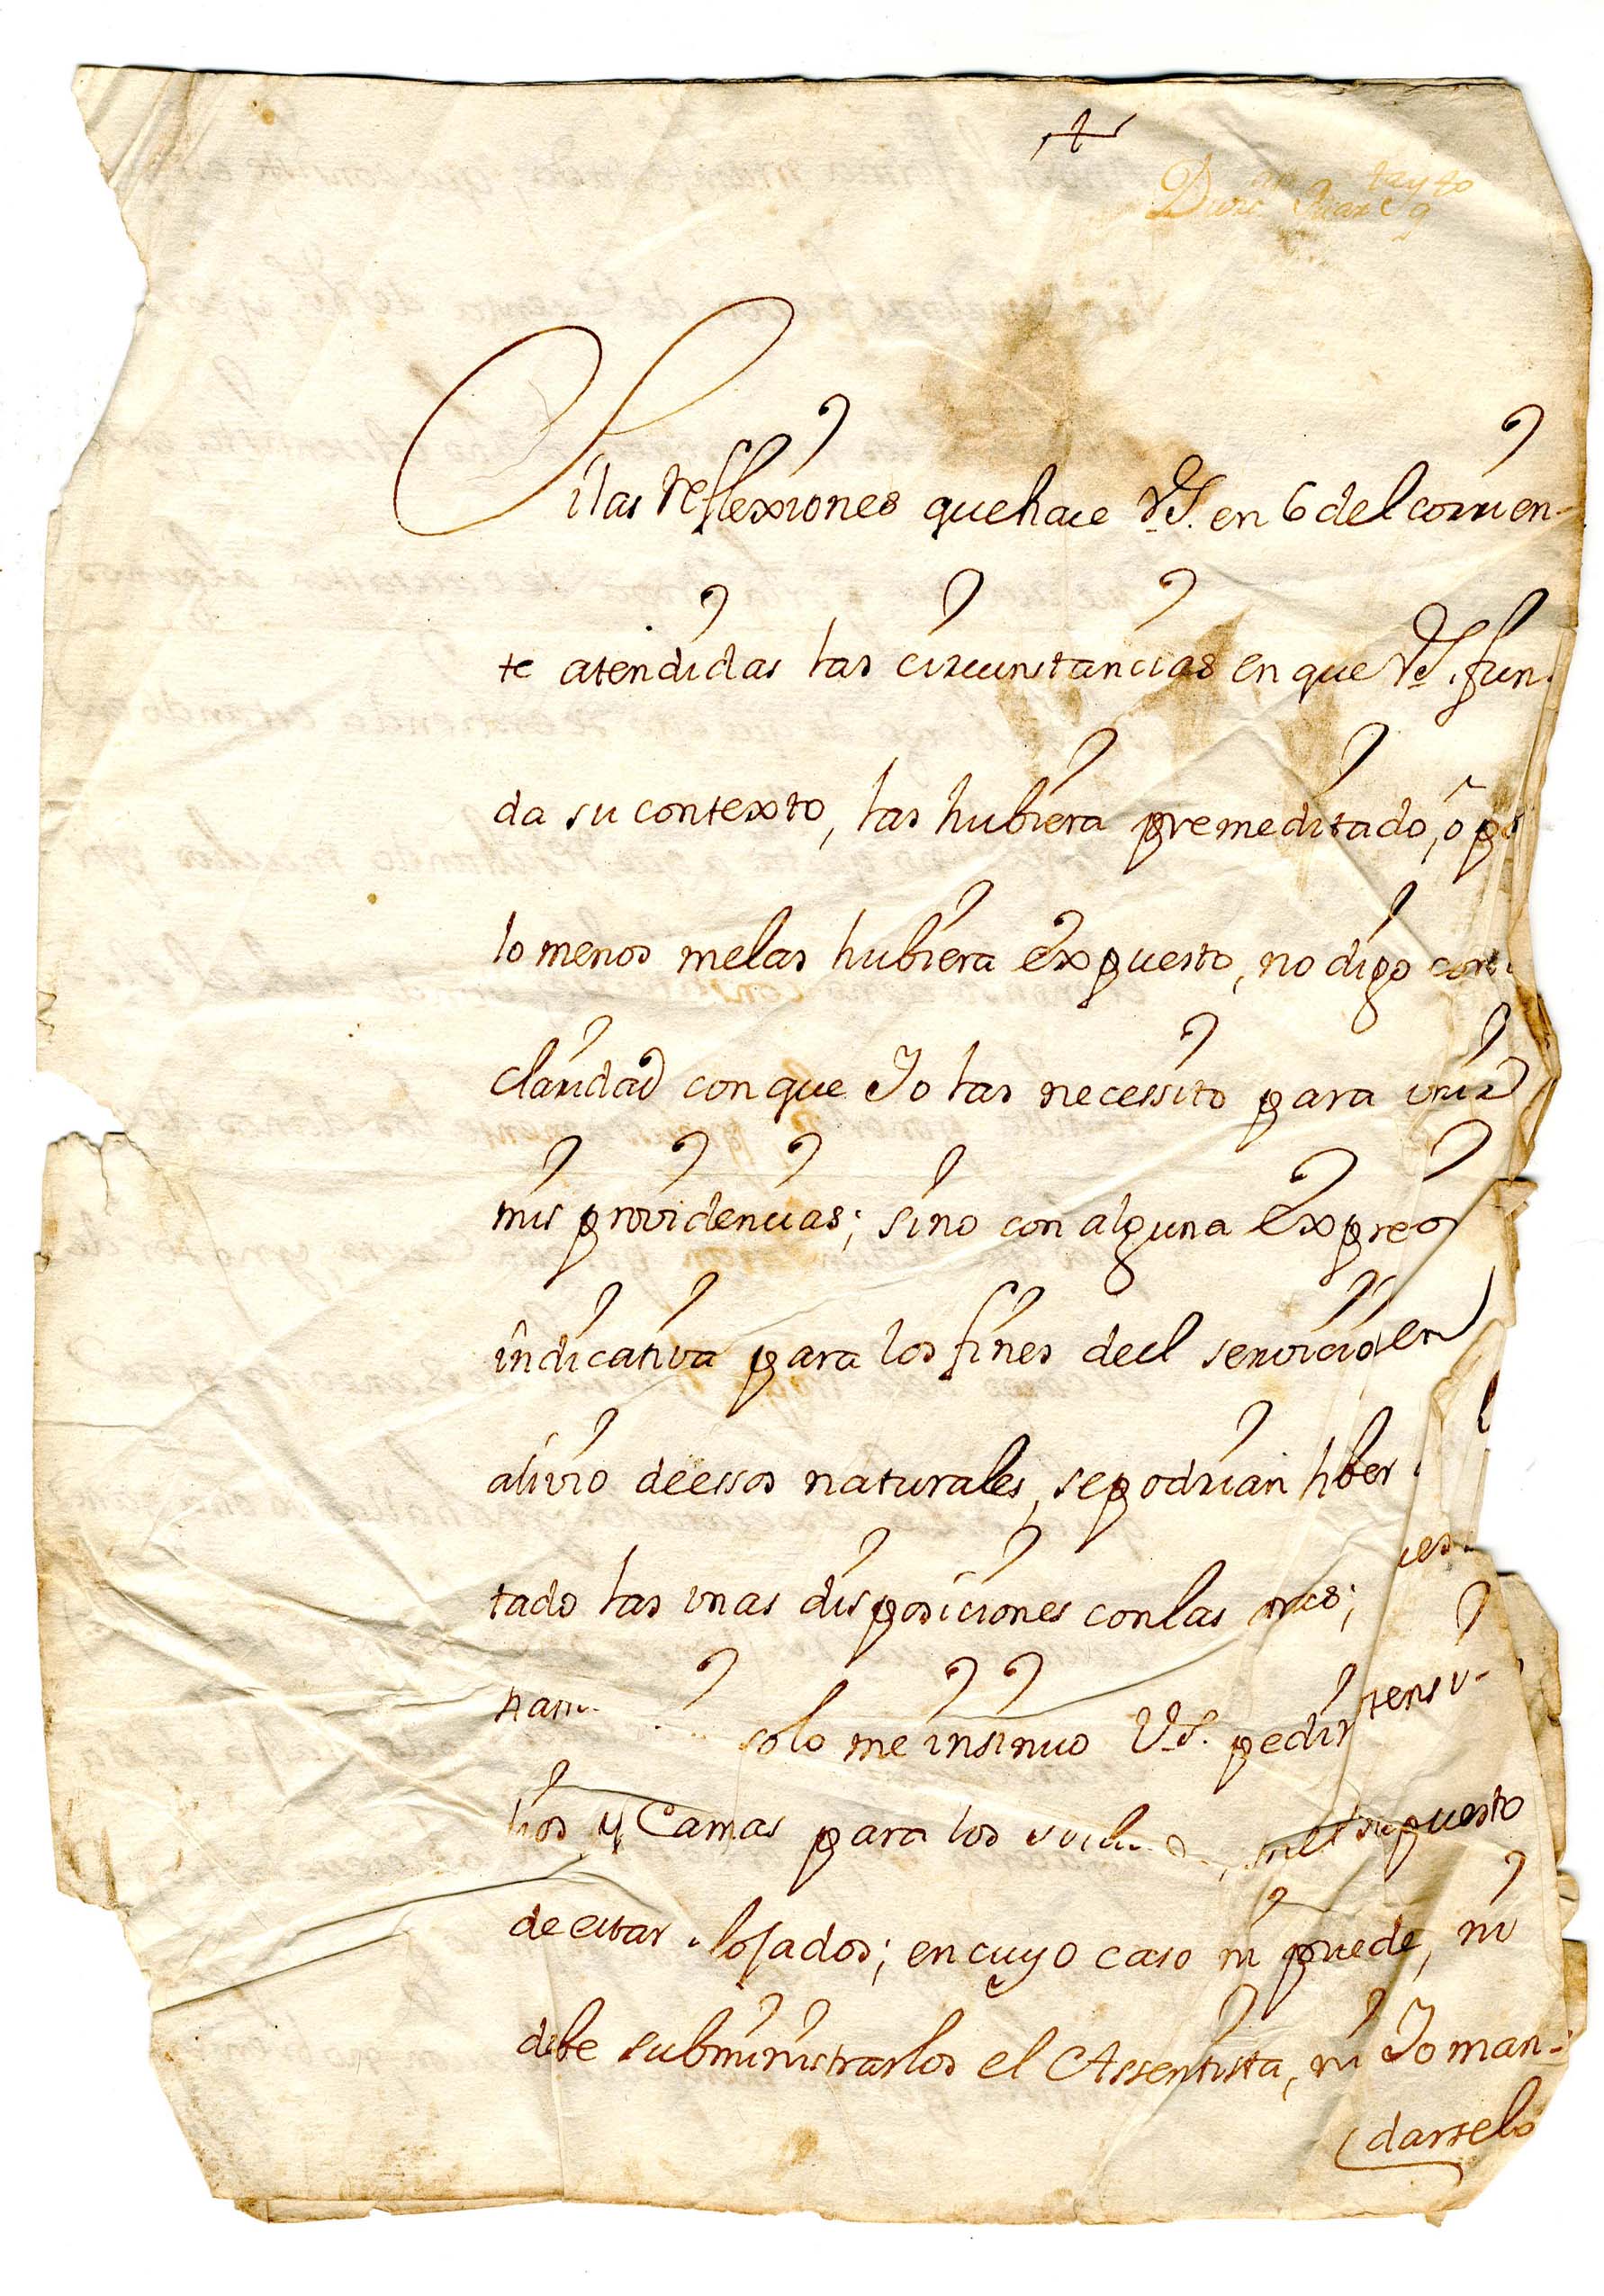 +
Si las reflexiones que hace VS. en 6 del corrien-
te atendidas las circunstancias en que VS. fun-
da su contexto, las hubiera premeditado, ô p
lo menos melas hubiera expuesto, no digo con
claridad conque Jo las necessito para unir
mis providencias; sino con alguna expres
indicativa para los fines deel servicio, en
alivio deessos naturales, sepodrian liber
tado las unas disposiciones conlas
solo me insinuo VS. pedir tensi-
lios y Camas para los el supuesto
de estar alojados; encuyo caso ni puede, ni
debe subministrarlos el Assentista, ni Jo man-
darselo